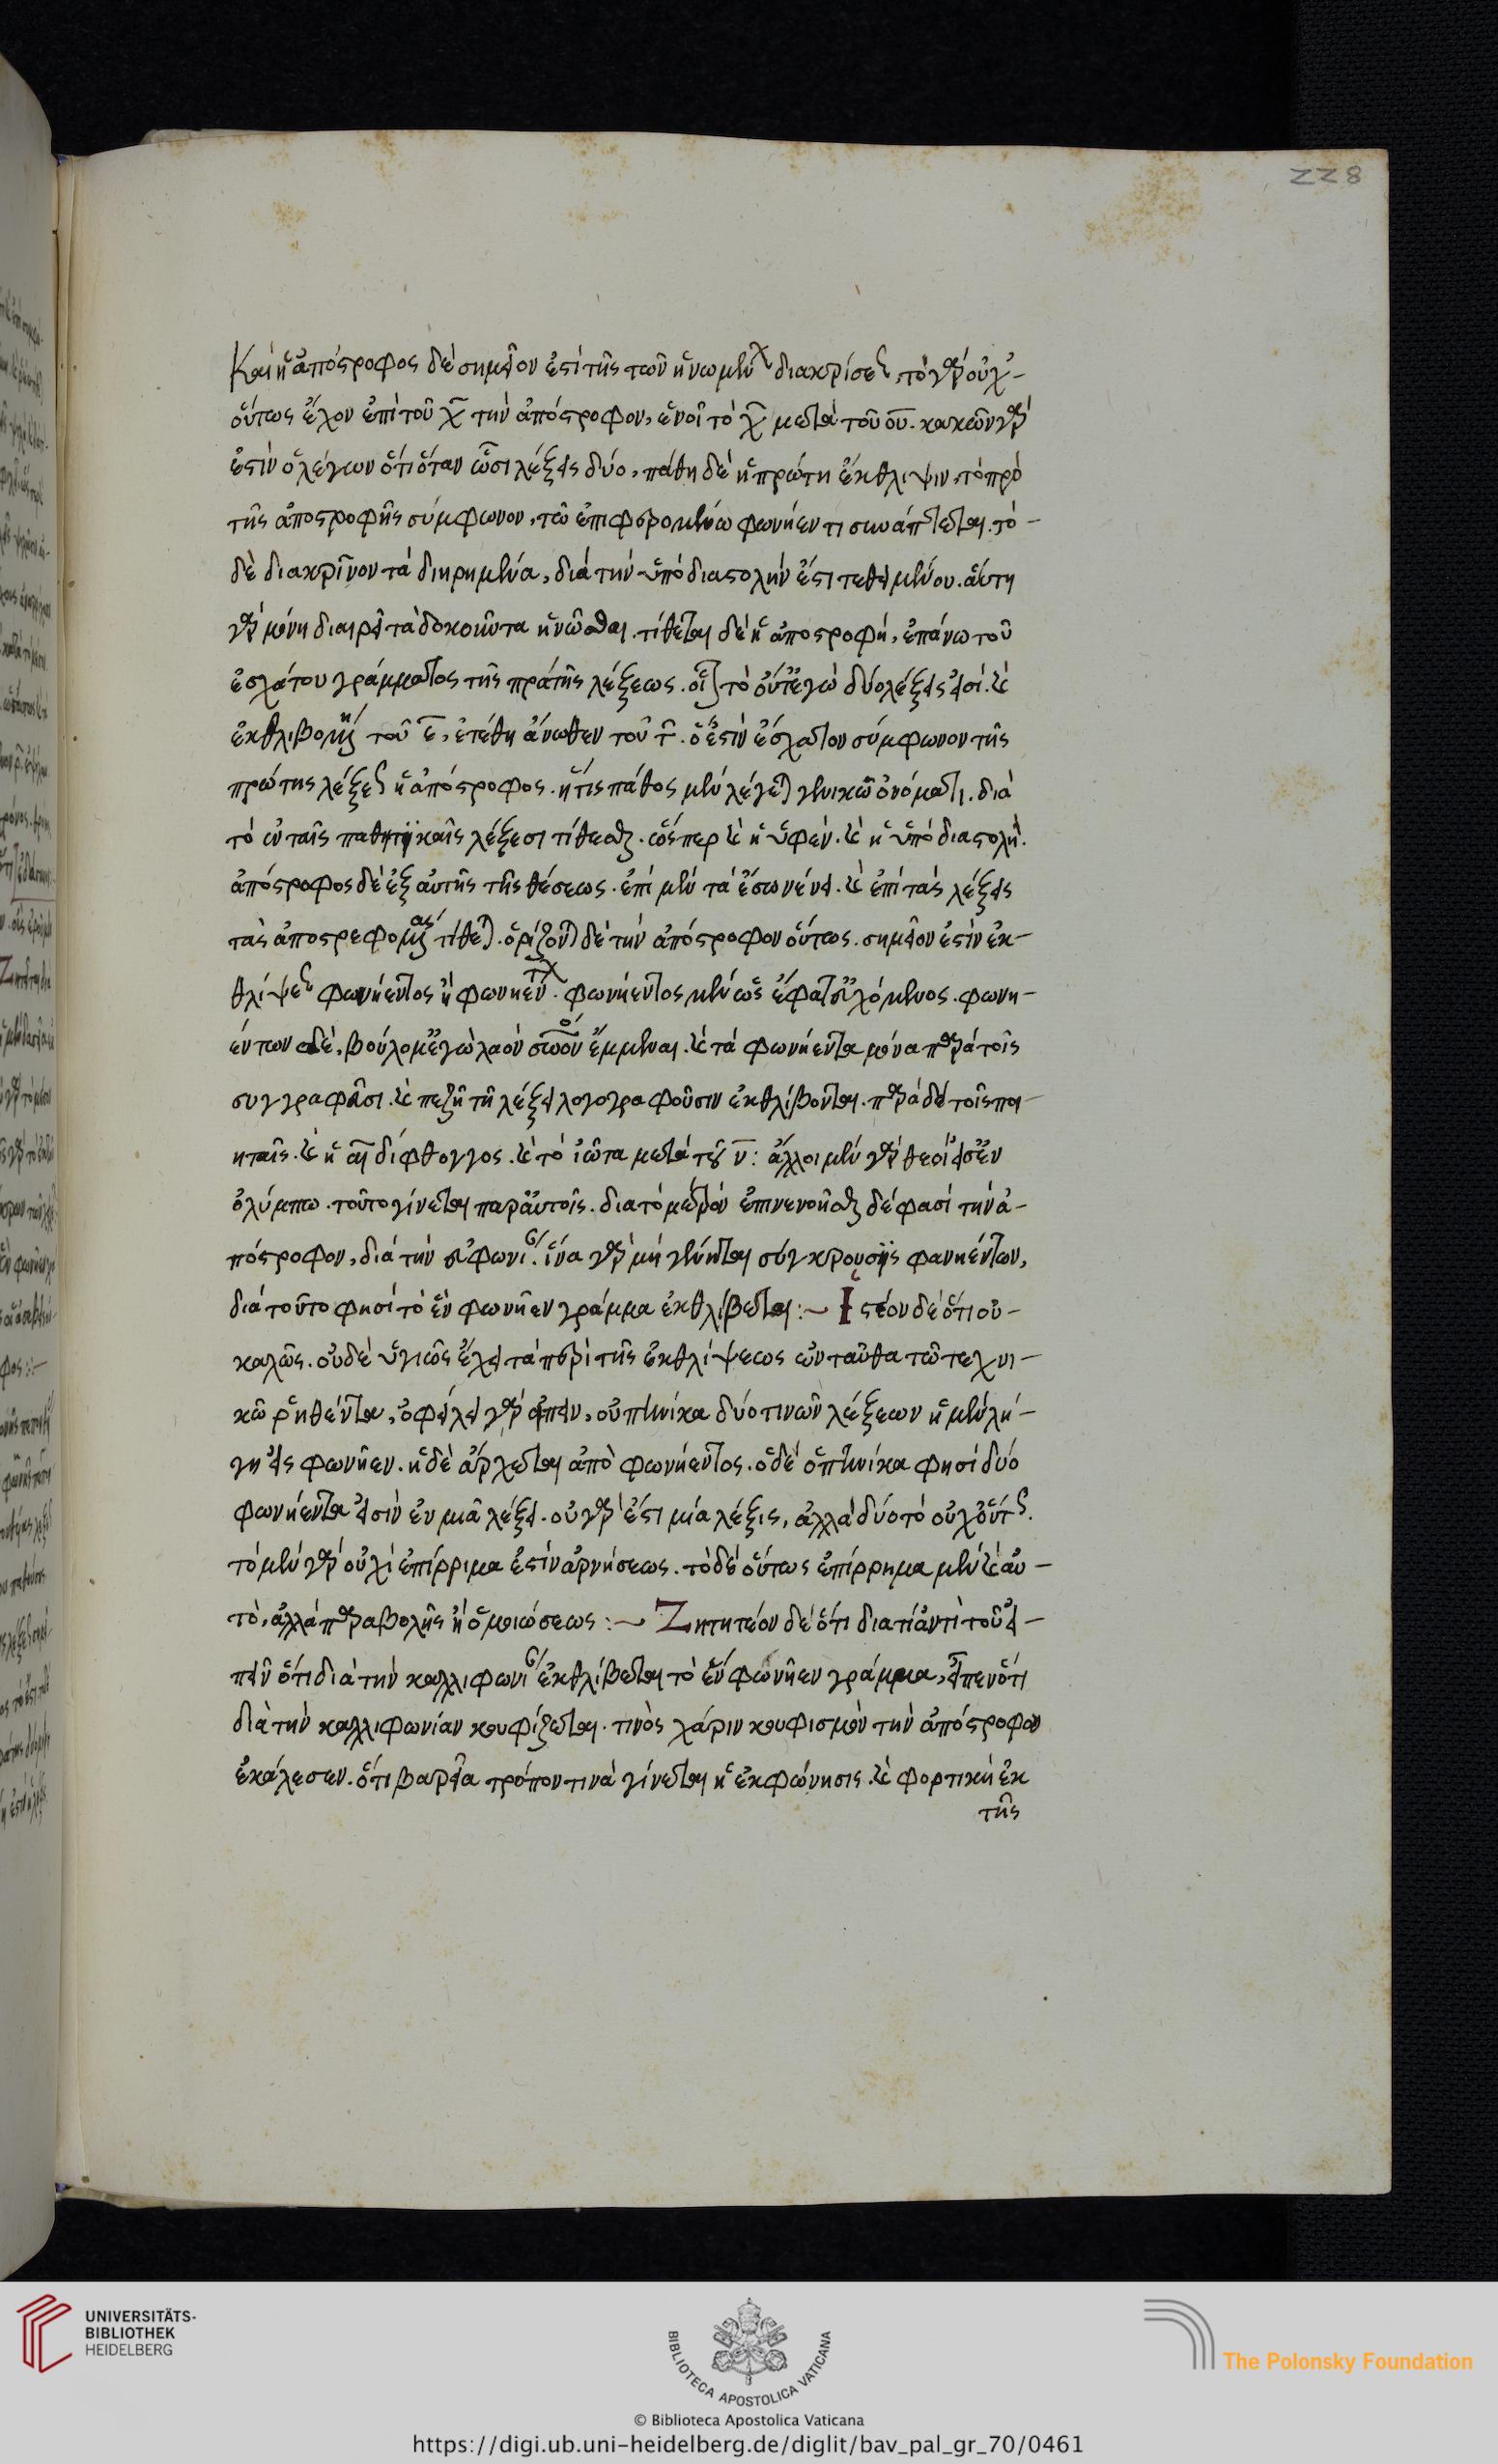 228
Καὶ ἡ ἀπόστροφος δὲ σημεῖον ἐστὶ τῆς τῶν ἡνωμένων διακρίσεως, τὸ γὰρ οὐχ-
οὕτως ἔχον ἐπὶ τοῦ χ τὴν ἀπόστροφον, ἑνοῖ τὸ χ μετὰ τοῦ ου. κακῶν γάρ
ἐστιν ὁ λέγων ὅτι ὅταν ὦσι λέξεις δύο, πάθη δὲ ἡ πρώτη ἔκθλιψιν, τὸ πρὸ
τῆς ἀποστροφῆς σύμφωνον, τῶ ἐπιφερομένω φωνήεντι συνάπτεται. τὸ-
δὲ διακρῖνον τὰ διηρημένα, διὰ τὴν ὑποδιαστολὴν ἔστι τεθειμένου. αὕτη
γὰρ μόνη διαιρεῖ τὰ δοκοῦντα ἡνῶσθαι. τίθεται δὲ ἡ ἀποστροφὴ, ἐπάνω τοῦ
ἐσχάτου γράμματος τῆς πρώτης λέξεως. οἷον τὸ οὔτ' ἐγὼ δύο λέξεις εἰσί. καὶ
τοῦ ε, ἐτέθη ἄνωθεν τοῦ τ. ὅ ἐστιν ἔσχατον σύμφωνον τῆς
πρώτης λέξεως ἡ ἀπόστροφος. ἥτις πάθος μὲν λέγεται γενικῶ ὀνόματι. διὰ
τὸ ἐν ταῖς παθητικαῖς λέξεσι τίθεσθαι. ὥσπερ καὶ ἡ ὑφέν. καὶ ἡ ὑποδιαστολή.
ἀπόστροφος δὲ ἐξ αὐτῆς τῆς θέσεως. ἐπὶ μὲν τὰ ἔσω νένει. καὶ ἐπὶ τὰς λέξεις
τὰς ἀποστρεφομένας τίθεται. ὁρίζονται δὲ τὴν ἀπόστροφον οὕτως. σημεῖον ἐστὶν ἐκ-
θλίψεως φωνήεντος ἢ φωνηέντων. φωνήεντος μὲν ὡς ἔφατ' εὐχόμενος. φωνη-
έντων δὲ, βούλομ' ἐγὼ λαὸν σῶον ἔμμεναι. καὶ τὰ φωνήεντα μόνα παρὰ τοῖς
συγγραφεῦσι. καὶ πεζῆ τῆ λέξει λογογραφοῦσιν ἐκθλίβονται. παρὰ δὲ τοῖς ποι-
ηταῖς. καὶ ἡ αι δίφθογγος. καὶ τὸ ἰῶτα μετὰ τοῦ ν: ἄλλοι μὲν γὰρ θεοὶ εἰσ' ἐν
ὀλύμπω. τοῦτο γίνεται παρ' αὐτοῖς. διὰ τὸ μέτρον ἐπινενοῆσθαι δέ φασι τὴν ἀ-
πόστροφον, διὰ τὴν εὐφωνίαν. ἵνα γὰρ μὴ γένηται σύγκρουσις φωνηέντων,
διὰ τοῦτο φησὶ τὸ ἓν φωνῆεν γράμμα ἐκθλίβεται:~ Ἰστέον δὲ ὅτι οὐ-
καλῶς. οὐδὲ ὑγιῶς ἔχει τὰ περὶ τῆς ἐκθλίψεως ἐνταῦθα τῶ τεχνι-
κῶ ῥηθέντα, ὀφείλει γὰρ εἰπεῖν, ὁπηνίκα δύο τινῶν λέξεων ἡ μὲν λή-
γη εἰς φωνῆεν. ἡ δὲ ἄρχεται ἀπὸ φωνήεντος. ὁ δὲ ὁπηνίκα φησὶ δύο
φωνήεντα εἰσὶν ἐν μιᾶ λέξει. οὐ γὰρ ἔστι μία λέξις, ἀλλὰ δύο τὸ οὐχ οὕτως.
τὸ μὲν γὰρ οὐχὶ ἐπίρριμα ἐστὶν ἀρνήσεως. τὸ δὲ οὕτως ἐπίρρημα μὲν καὶ αὐ-
τὸ, ἀλλὰ παραβολῆς ἢ ὁμοιώσεως:~ Ζητητέον δὲ ὅτι διατί ἀντὶ τοῦ εἰ-
πεῖν ὅτι διὰ τὴν καλλιφωνίαν ἐκθλίβεται τὸ ἓν φωνῆεν γράμμα, εἶπεν ὅτι
διὰ τὴν καλλιφωνίαν κουφίζεται. τινὸς χάριν κουφισμὸν τὴν ἀπόστροφον
ἐκάλεσεν. ὅτι βαρεῖα τρόπον τινὰ γίνεται ἡ ἐκφώνησις. καὶ φορτικὴ ἐκ
τῆς
UNIVERSITÄTS-
BIBLIOTHEK
HEIDELBERG
BIBLIOTECA APOSTOLICA VATICANA
The Polonsky Foundation
© Biblioteca Apostolica Vaticana
https://digi.ub.uni-heidelberg.de/diglit/bav_pal_gr_70/0461